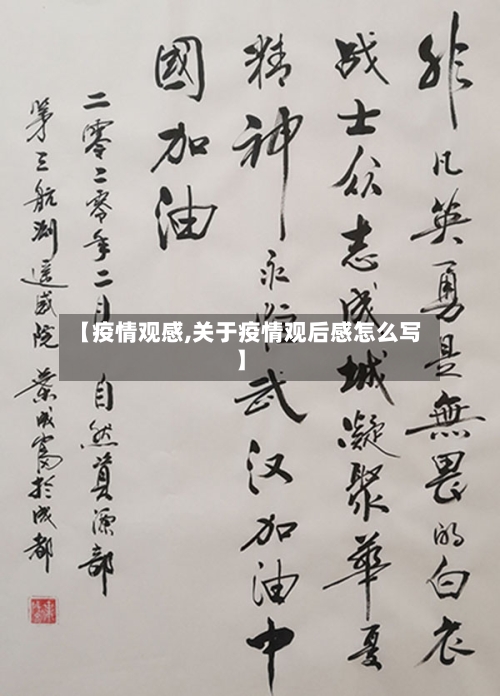 非凡英勇是無畏的白衣
战士众志成城凝聚華夏
精神永恒武汉加油中
國加油
二零二零年二月 自然資源部
第三航测遥感院 成富於成都
【疫情观感,关于疫情观后感怎么写
】